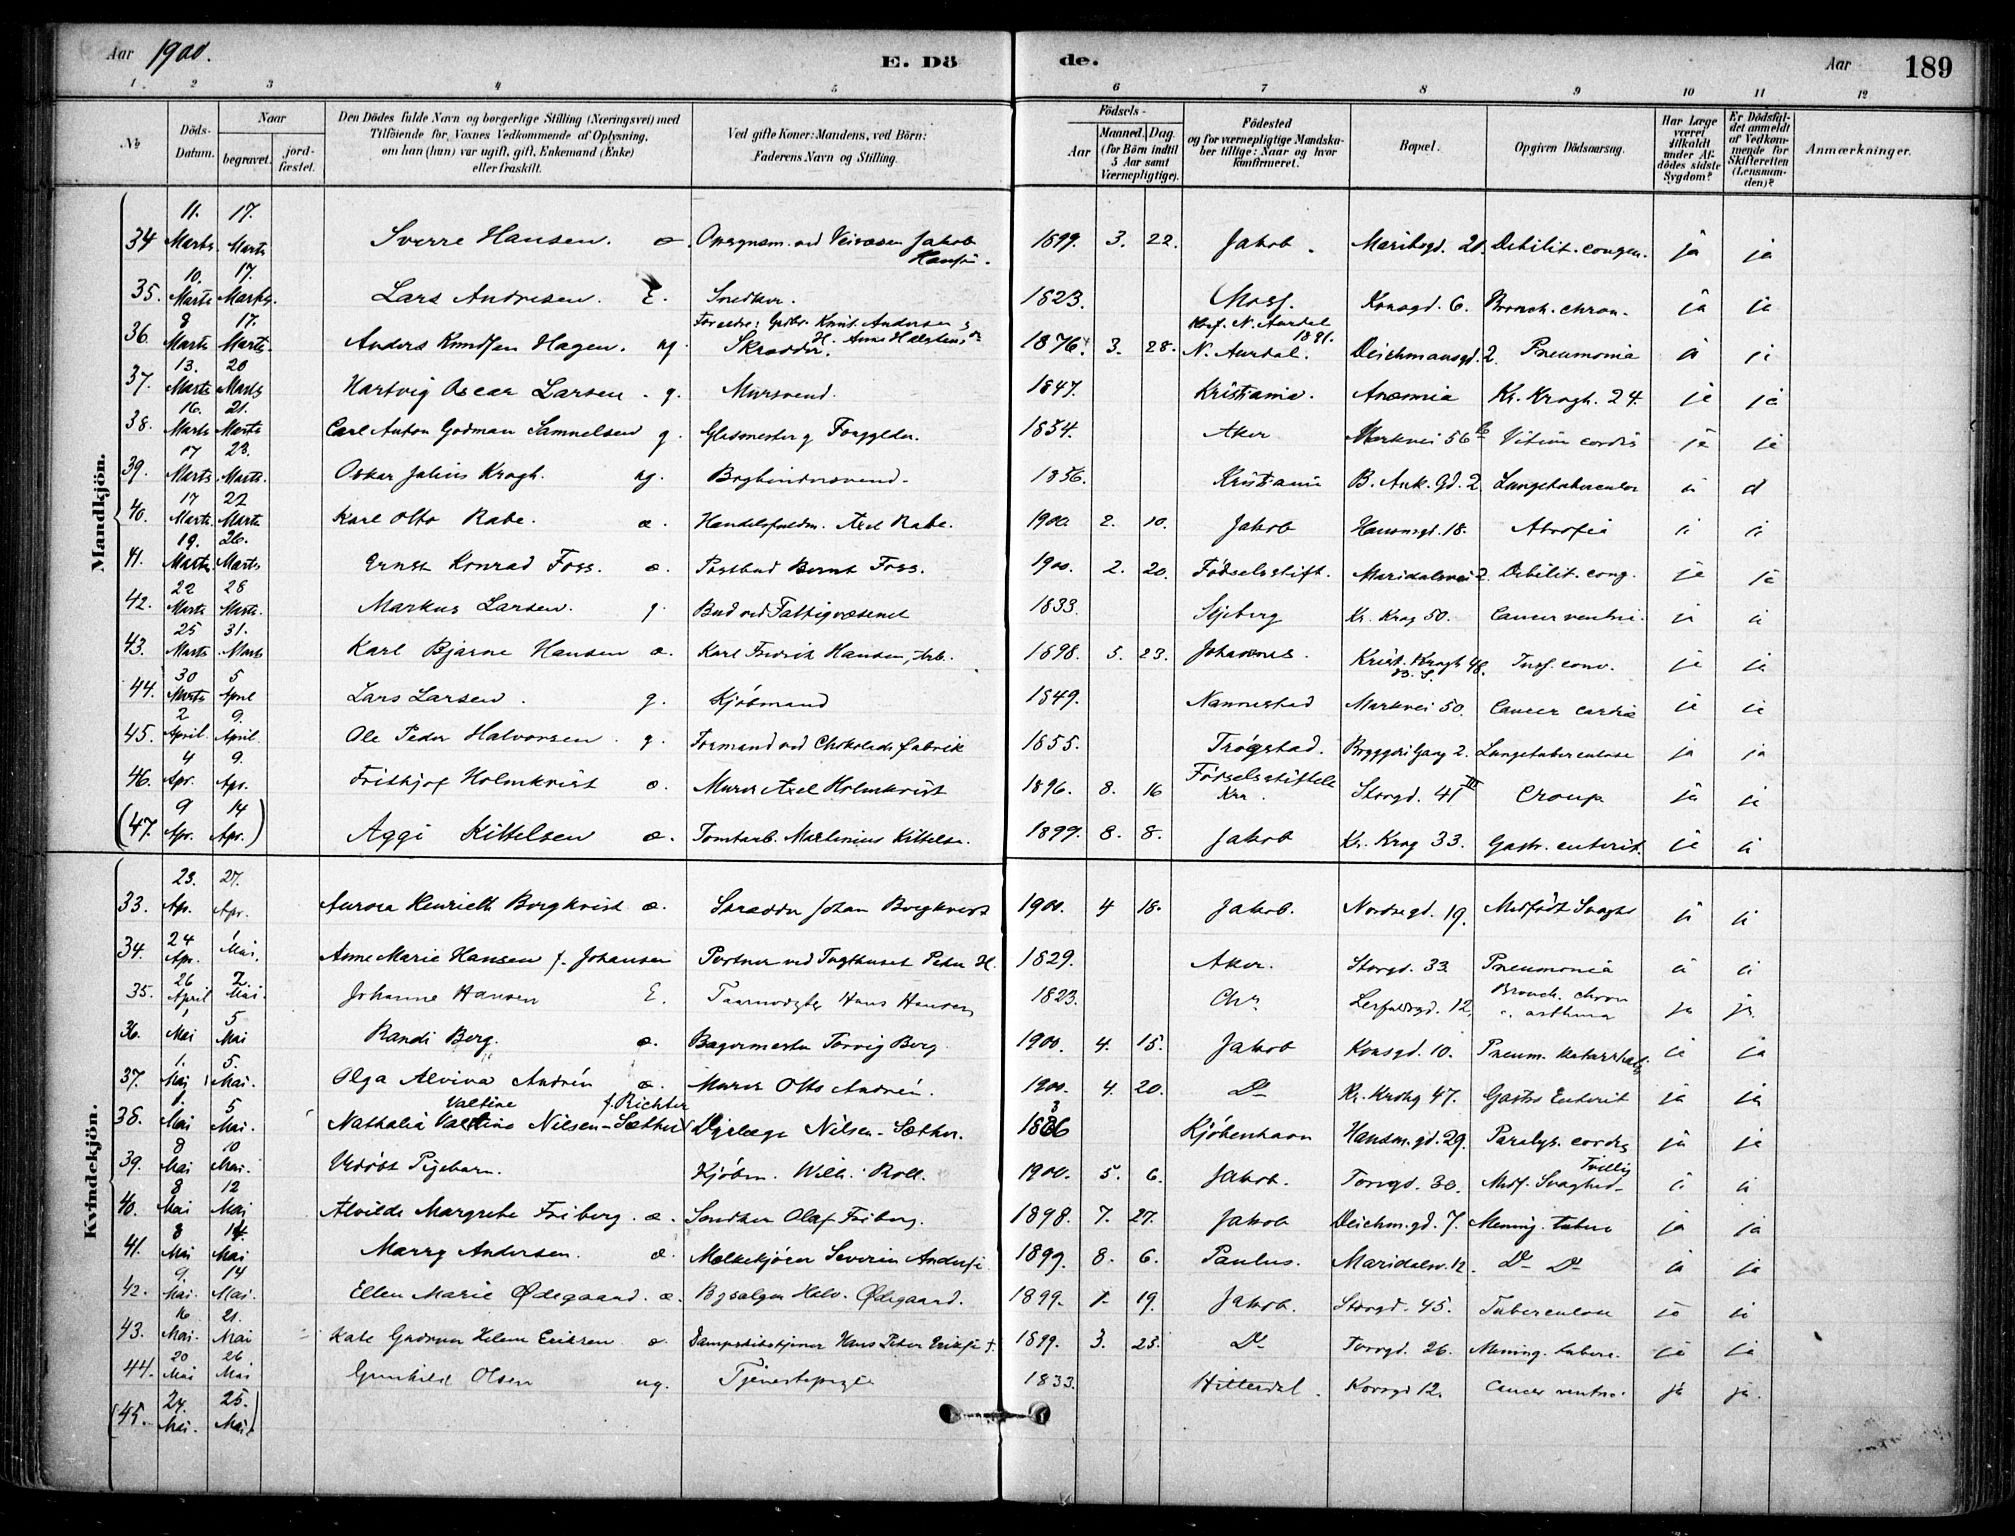 Aar 1900. E. Dö de. Aar 189
1 2 3 4 5 6 7 8 9 10 11 12
№ Döds-Datum. Naar begravet. jord-fæstet. Den Dödes fulde Navn og borgerlige Stilling (Næringsvei) med Tilföiende for Voxnes Vedkommende af Oplysning, om han (hun) var ugift, gift, Enkemand (Enke) eller fraskilt. Ved gifte Koner: Mandens, ved Börn: Faderens Navn og Stilling. Födsels- Aar Maaned. Dag. (for Börn indtil 5 Aar samt Værnepligtige). Födested og for værnepligtige Mandskaber tillige: Naar og hvor konfirmeret. Bopæl. Opgiven Dödsaarsag. Har Læge været tilkaldt under Afdödes sidste Sygdom? Er Dödsfaldet anmeldt af Vedkommende for Skifteretten (Lensmanden)? Anmærkninger.
Mandkjön.
34 11. Marts 17. Marts Sverre Hansen. Jakob Hansen. 1899. 3. 22. Jakob. Maribogd. 21. Debilit. congen. ja ja
35. 10. Marts 17. Marts. Lars Andresen. E. Snedker. 1823. Moss. Korsgd. 6. Bronch. chron. ja ja
36. 8 Marts 17. Marts. Anders Knudsen Hagen. ug. Forældre: Gaardbr. Knut Andersen Skrædder. 1876. 3. 28. Konf. N. Aurdal 1891. N. Aurdal. Deichmansgd. 2. Pneumonia ja ja
37. 13. Marts 20 Marts Hartvig Oscar Larsen. g. Mursvend. 1847. Kristiania. Anæmia Kr. Krogh. 24. ja ja
38. 16. Marts 21. Marts Carl Anton Godman Samuelsen g. Glasmester g Forgylder. 1854. Aker Markvei 56 b Vitium cordis ja ja
39. 17 Marts. 23. Marts. Oskar Julius Krogh. ug. Bogbindersvend. 1856. Kristiania B. Ank. Gd. 2 Lungetubercul.
40. 17 Marts. 22 Marts Karl Otto Rabe. æ. Handelsfuldm. Axel Rabe. 1900. 2. 10. Jakob Hausmgd. 18. Atrofia
41. 19. Marts. 26. Marts Ernst Konrad Foss. æ. Postbud Bernt Foss. 1900. 2. 20. Födselsstift. Maridalsvei 2. Debilit. cong. ja ja
42. 22 Marts 28 Marts. Markus Larsen. g. Bud ved Fattigvæsenet 1833. Skjeberg Kr. Krog 50. Cancer ventric. ja ja
43. 25 Marts 31. Marts Karl Bjarne Hansen æ. Karl Fredrik Hansen, Arb. 1898. 5. 23. Johannes. Krist. Krogh 48. ja ja
44. 30 Marts 5 April Lars Larsen. g. Kjöbmand 1849. Nannestad Markvei 50. Cancer cardia ja ja
45. 2 April. 9. April. Ole Peder Halvorsen. g. Formand ved Chokoladefabrik 1855. Trögstad. Bryggeri Gang 2. Lungetuberculose ja ja
46. 4 Apr. 9. Apr. Frithjof Holmkvist æ. Murer Axel Holmkvist 1896. 8. 16 Födselsstiftels. Kra. Storgd. 41 III Croup. ja ja
(47. 9 Apr. 14 Apr.) Aggi Kittelsen æ. Tomtarb. Martinius Kittelsen. 1899. 8. 8. Jakob Kr. Krog 33. Gastr. enterit. ja ja
Kvindekjön.
33. 23. Apr. 27. Apr. Aurora Henriette Borgkvist æ. Skrædder Johan Borgkvist 1900. 4 18. Jakob. Nordregd. 19. Medfödt Svaghd ja ja
34. 24 Apr. 1 Mai. Anne Marie Hansen f. Johansen Portner ved Tugthuset Peder H. 1829. Aker. Storgd. 33. Pneumonia ja ja
35. 26 April 2. Mai. Johanne Hansen E. Taarnvægter Hans Hansen 1823. Chr. Lerfaldsgd. 12, Bronch. chron asthma ja ja
36. 1 Mai 5 Mai Randi Berg. æ. Bagermester Torvig Berg. 1900. 4. 15. Jakob Korsgd. 10. Pneum. katarrhalis ja ja
37. 1. Mai 5. Mai. Olga Alvina Andrén æ. Murer Otto Andrén. 1900. 4. 20. Do Kr. Krohg 47. Gastro Enterit ja ja
38. 1. Mai 5 Mai. Nathalia Valtine Nilsen-Sæther f. Richter Dyrlæge Nilsen-Sæther. 1836 Kjöbenhavn Hausm. gd. 29. Paralys. cordis ja ja
39. 8 Mai 10 Mai. Udöbt Pigebarn. Kjöbm. Wilh. Roll. 1900. 5. 6. Jakob. Torvgd. 30. Medf. Svaghed Tvilling
40. 8 Mai 12 Mai Alvilde Margrethe Friberg. æ. Snedker Olaf Friberg. 1898. 7. 27. Jakob Deichm. gd. 7. Mening. tuberc ja ja
41. 8 Mai 14 Mai Marry Andersen. æ. Melkekjörer Severin Andersen 1899. 8. 6. Paulus. Maridalsv. 12. Do Do ja ja
42. 9. Mai. 14 Mai. Ellen Marie Ødegaard. æ. Halv. Ødegaard. 1899. 1. 19. Jakob. Storgd. 45. Tuberculose ja ja
43. 16 Mai. 21. Mai Kate Gudrun Helene Eriksen æ. Hans Peter Eriksen †. 1899. 3. 23. Do Torvgd. 26. Mening. tuberc. ja ja
44. 20 Mai 26. Mai Gunhild Olsen ug. Tjenestepige 1833. Hitterdal. Korsgd 12. Cancer ventric. ja ja.
(45. 24. Mai. 25. Mai)